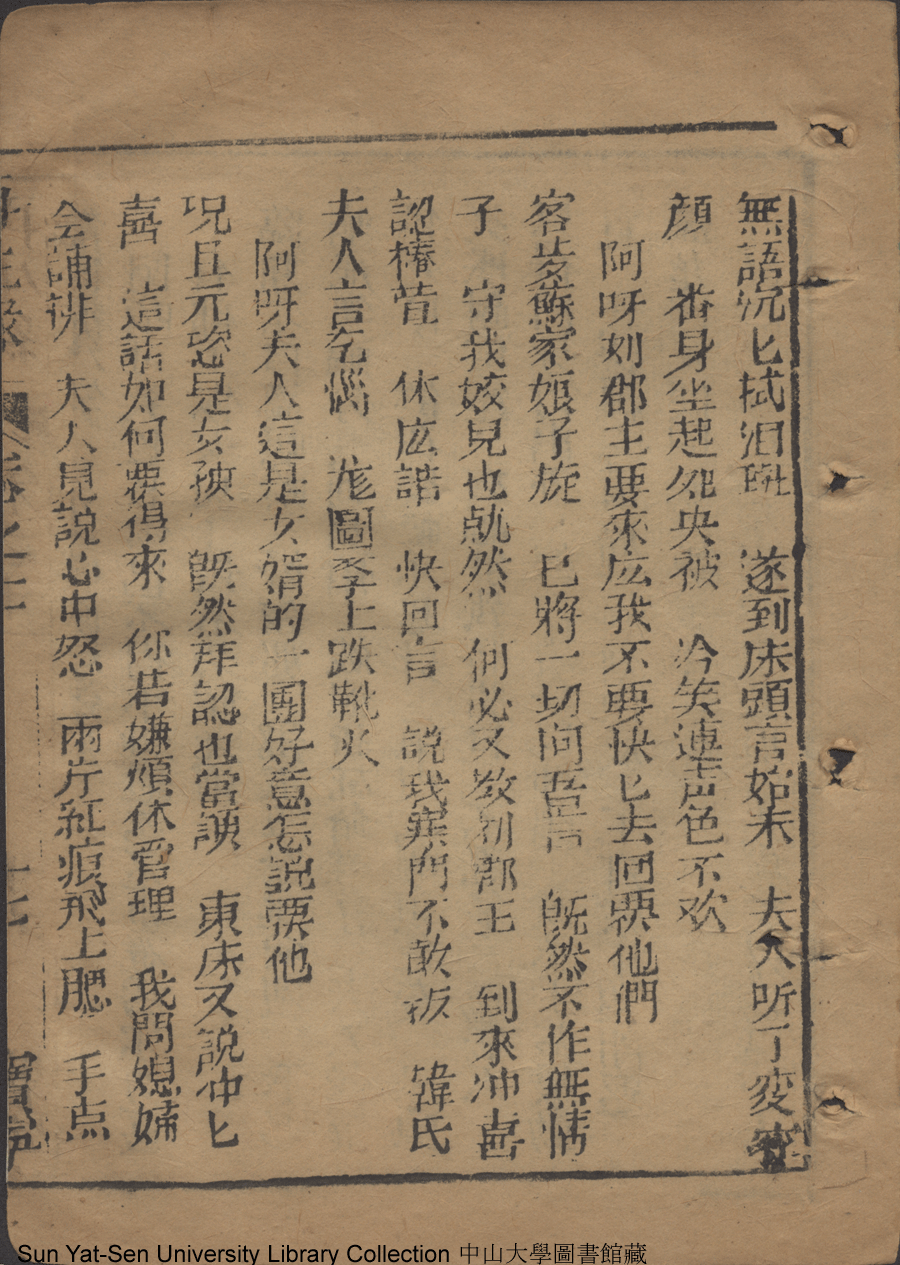 無語沉匕拭泪 遂到床頭言始末 夫人听了変
顔 番身坐起怨央被 冷笑連声色不欢
阿呀刘郡主要來庅我不要快匕去回要他們
客 蘇家娘子旋 已將一切问吾言 既然不作無情
子 守我姣兒也 然 何必又效刘郡王 到來冲喜
認椿萱 休庅誥 快回言 說我寒門不敢扳 韓氏
夫人言乞惱 圖 上跌靴火
阿呀夫人這是女婿的一團好意怎説要他
况且元 是女 既然拜認也當 東床又説冲匕
喜 這話如何要得來 你若嫌煩休官理 我問媳婦
会誦 夫人見説心中怒 兩片紅痕飛上腮 手点
卷之十 十七
Sun Yat-Sen University Library Collection 中山大學圖書館藏